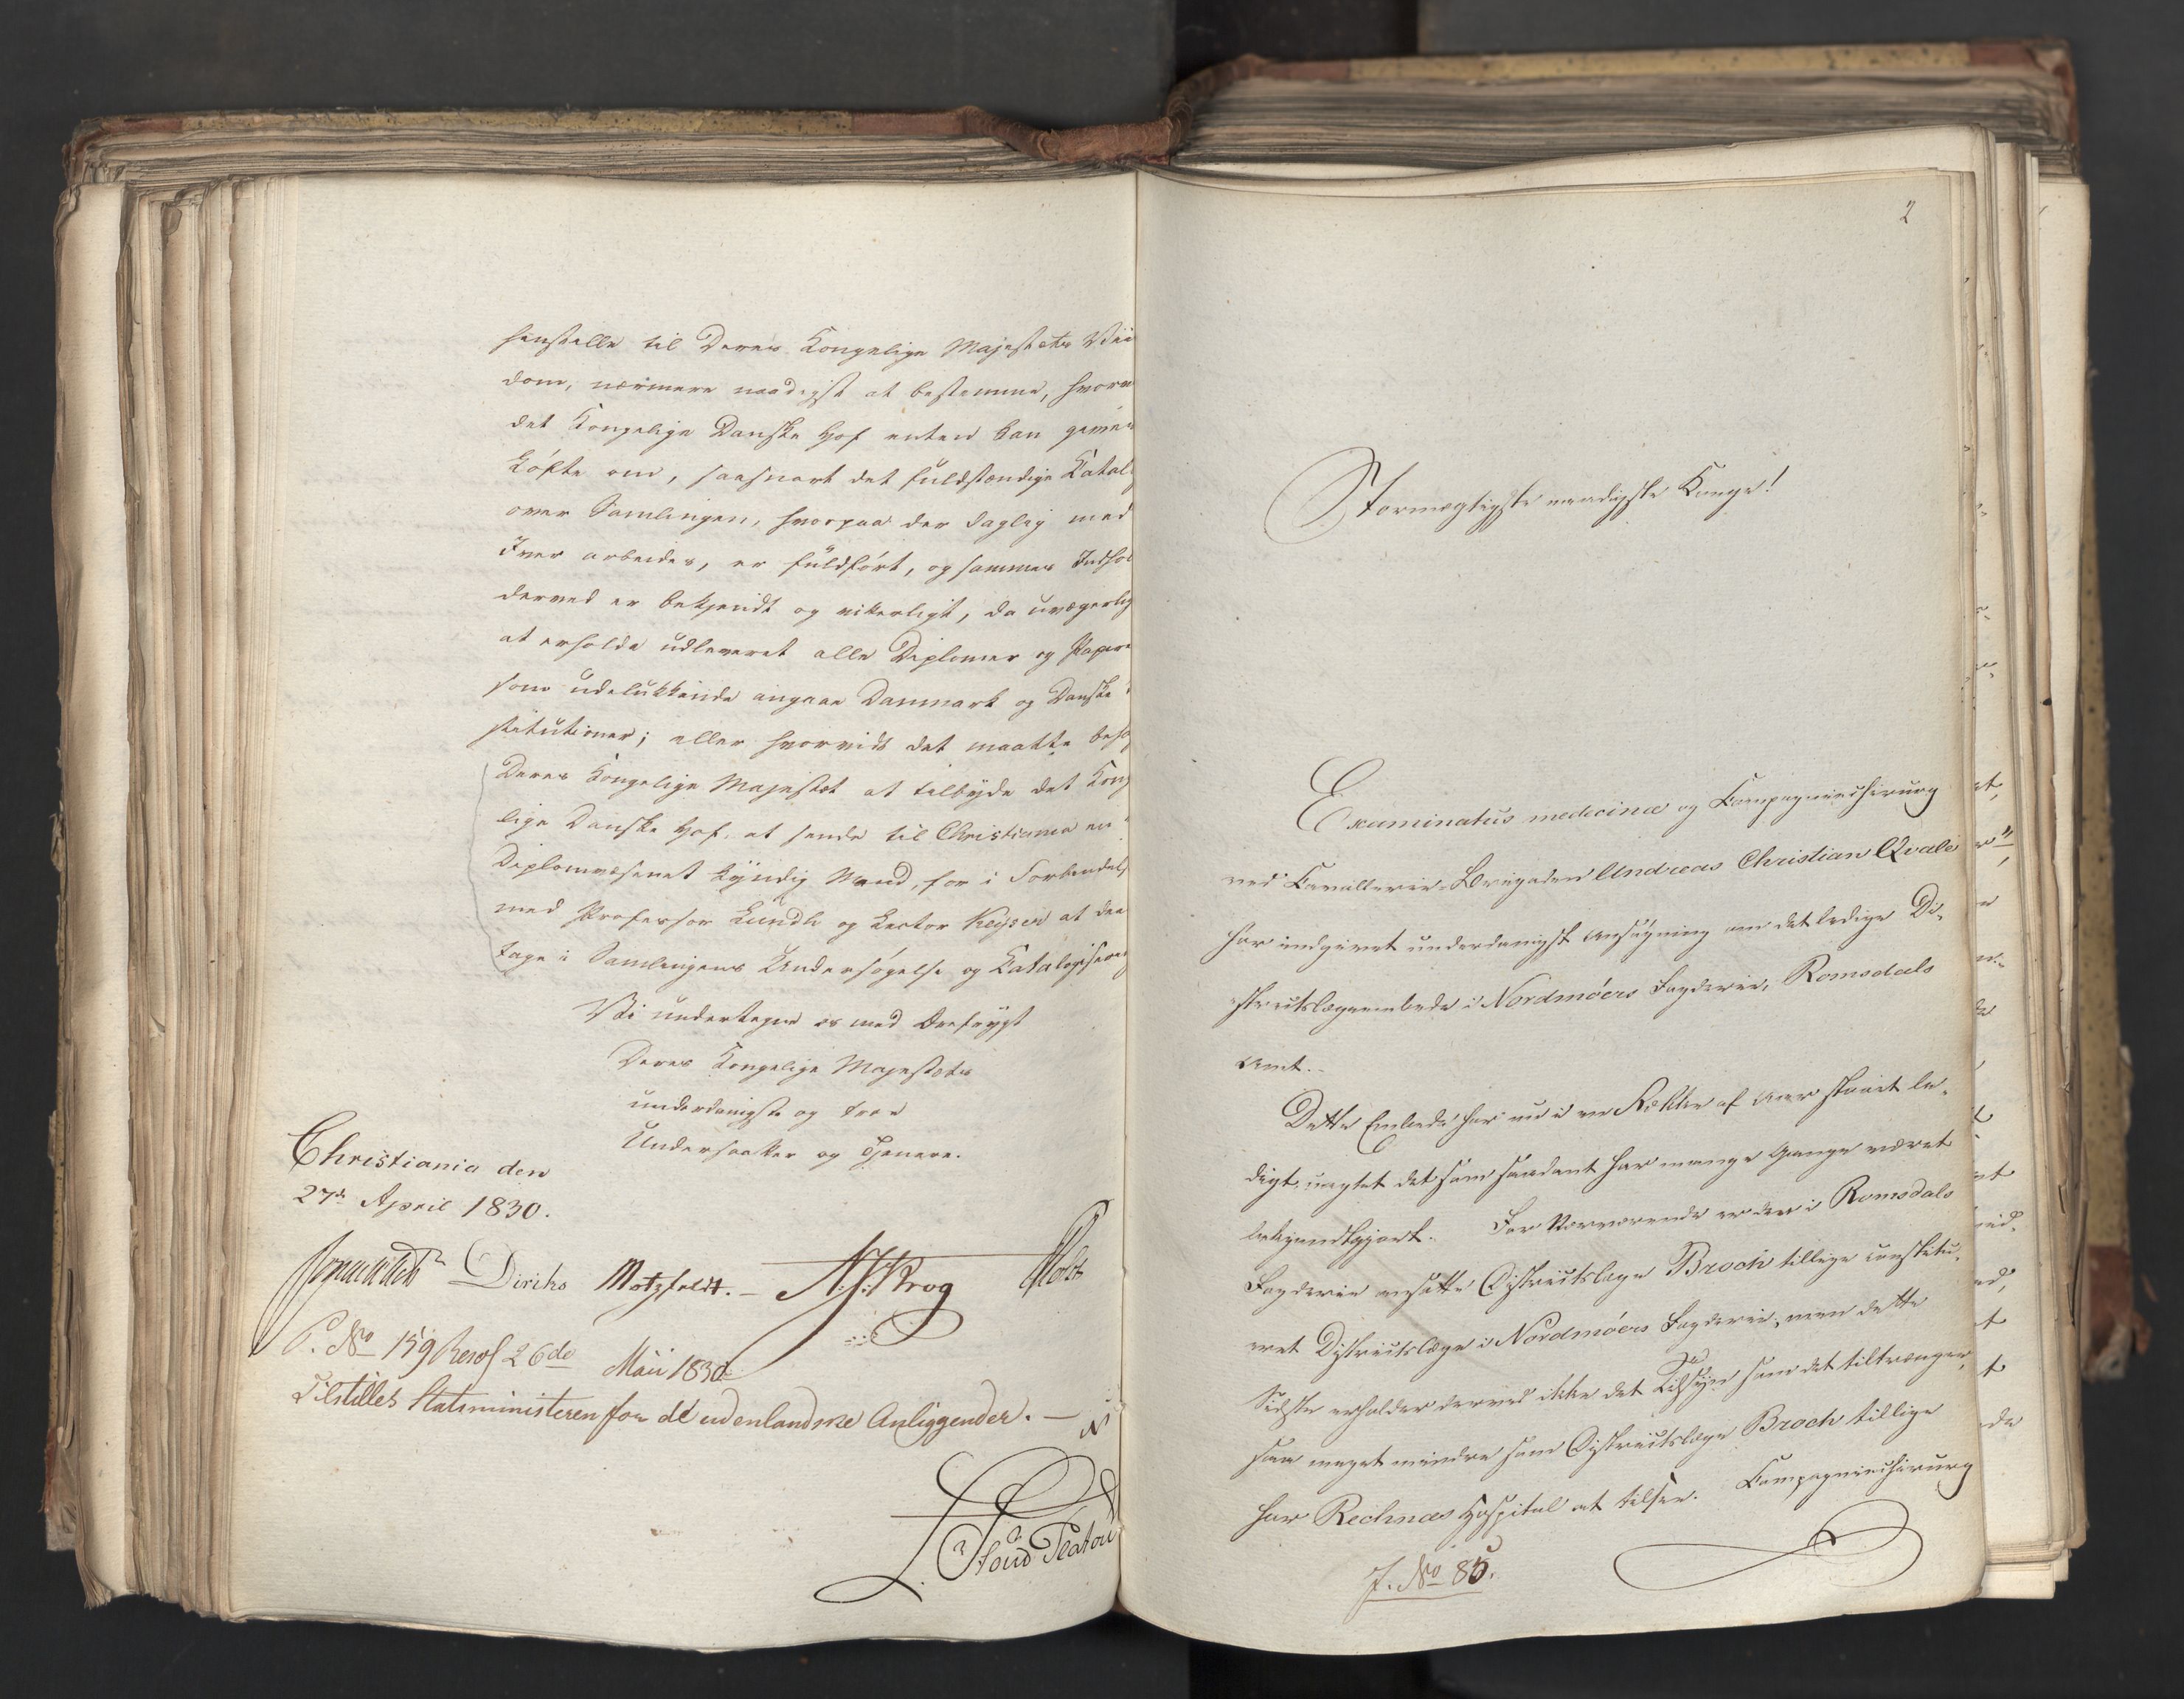 henstille til Deres Kongelige Majestæts Viis
dom, nærmere naadigst at bestemme, hvorv
det Kongelige Danske Hof enten kan gives
Löfte om, saasnart det fuldstændige Katal
over Samlingen, hvorpaa der daglig med
Iver arbeides, er fuldfört, og sammes Indhol
derved er bekjendt og vitterligt, da uvægerlig
at erholde udleveret alle Diplomer og Papire
som udelukkende angaae Danmark og Danske
stitutioner; eller hvorvidt det maatte beha
Deres Kongelige Majestæt at tilbyde det Kong
lige Danske Hof, at sende til Christiania en
Diplomvæsenet kyndig Mand, for i Forbindels
med Professor Lundh og Lector Keyser at dee
tage i Samlingens Undersögelse og Katalogisering
Vi undertegne os med Dybfrygt
Deres Kongelige Majestæts
underdanigste og troe
Undersaatter og Tjenere.
Christiania den
27de April 1830.
Diriks Motzfeldt. - N. J. Krog Holst
P. No 159 Resol 26de Maii 1830
Tilstilles Statsministeren for de udenlandske Anliggender. —
Stoud Platou
2
Stormægtigste naadigste Konge!
Examinatus medicinæ og Compagniechirurg
ved Cavallerie-Brigaden Andreas Christian Qvale
har indgivet underdanigst Ansøgning om det ledige Di-
strictslægeembede i Nordmöers Fogderie, Romsdals
Amt. -
Dette Embede har nu i en Række af Aar staaet le-
digt, uagtet det som saadant har mange Gange været
bekjendtgjort. For Nærværende er den i Romsdals
Fogderie ansatte Districtslæge Broch tillige constitu-
eret Districtslæge i Nordmöers Fogderie, men dette
Sidste erholder derved ikke det Tilsyn som det tiltrænger,
saa meget mindre som Districtslæge Broch tillige
har Recknæs Hospital at tilsee. Compagniechirurg
J. No 85.